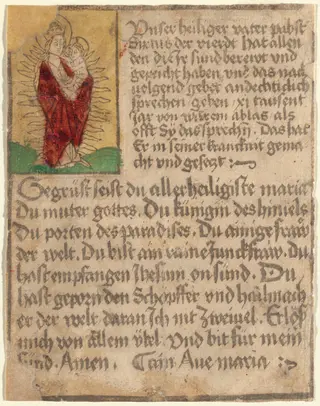 Unser heiliger vater pabst
Sixtus der vierdt hat allen
den die ir sund berewt und
gepeicht haben, und das nach
volgend gebet andechticlich
sprechen geben xi tausent
Jar von warem ablas als
offt sy das sprechn. Das hat
Er in seiner kranckait gema
cht und gesetzt :~
Gegrust seist du allerheiligiste maria
Du muter gottes. Du künigin des himels
Du porten des paradises. Du ainige fraw
der welt. Du bist ain raine junckfraw. du
hast empfangen Jhesum on sund. Du
hast geporn den Schöpffer und hailmach
er der welt daran Ich nit zweivel. Erlös
mich von allem übel. Und bit für mein
sünd. Amen. Ave maria :~